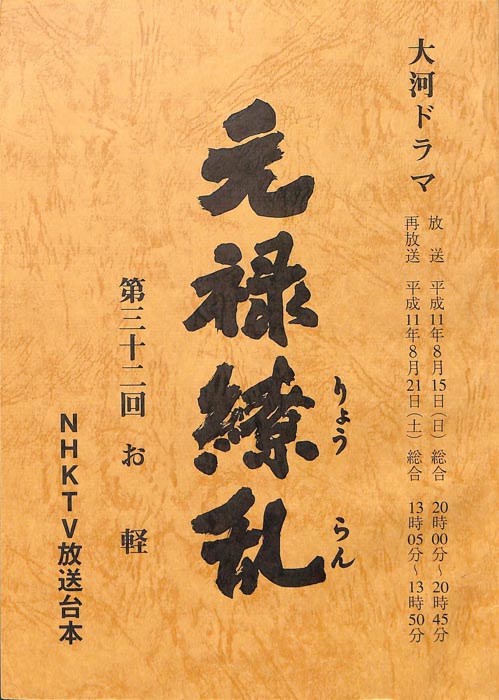 大河ドラマ
放 送 平成11年8月15日(日) 総合 20時00分〜20時45分
再放送 平成11年8月21日(土) 総合 13時05分〜13時50分
元禄繚乱
りょう らん
第三十二回 お 軽
NHKTV放送台本